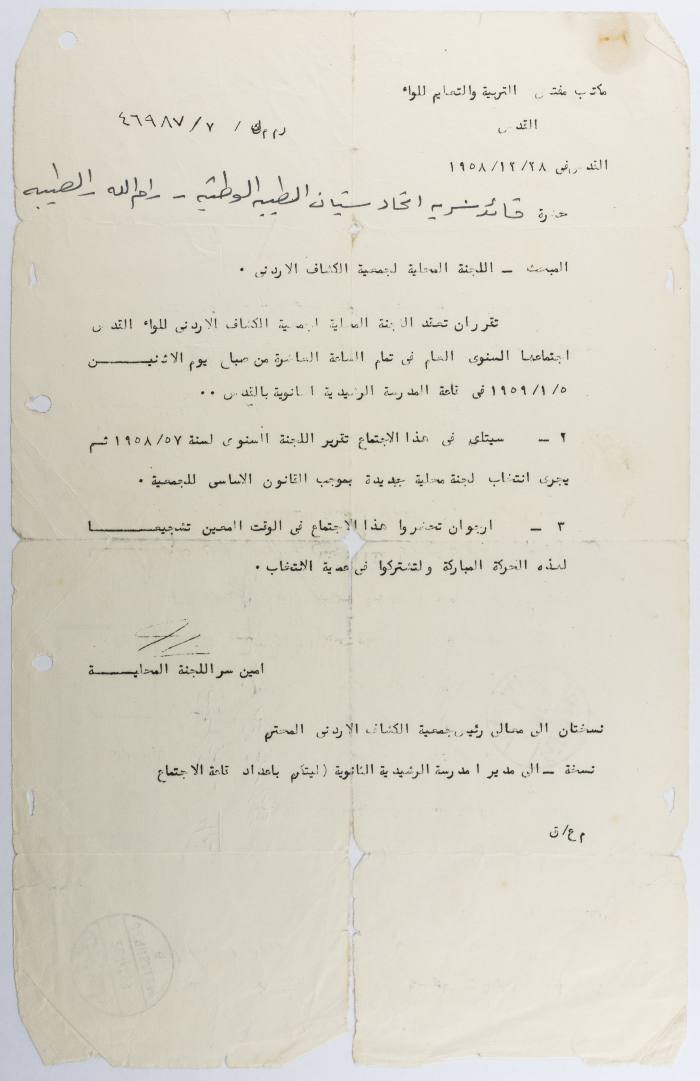 مكتب مفتش التربية والتعليم للواء
القدس
رم م ك / ٧ / ٤٦٩٨٧
القدس في ٢٨ /١٢/ ١٩٥٨
حضرة قائد سرية اتحاد شبان الطيبه الوطنيه - رام الله - الطيبه
المبحث - اللجنة المحلية لجمعية الكشاف الاردني .
تقرر ان تعقد اللجنة المحلية لجمعية الكشاف الاردني للواء القدس
اجتماعها السنوى العام في تمام الساعة العاشرة من صباح يوم الاثنيـــــن
٥ /١ /١٩٥٩ في قاعة المدرسة الرشيدية الثانوية بالقدس ..
٢ - سيتلى في هذا الاجتماع تقرير اللجنة السنوى لسنة ٥٧/ ١٩٥٨ ثـم
يجرى انتخاب لجنة محلية جديدة بموجب القانون الاساسي للجمعية .
٣ - ارجو ان تحضروا هذا الاجتماع في الوقت المعين تشجيعــــــا
لهذه الحركة المباركة ولتشتركوا في عملية الانتخاب .
امين سر اللجنة المحليــــة
نسختان الى معالي رئيس جمعية الكشاف الاردني المحترم
نسخة - الى مدير المدرسة الرشيدية الثانوية (ليتكرم باعداد قاعة الاجتماع
م ع/ ق